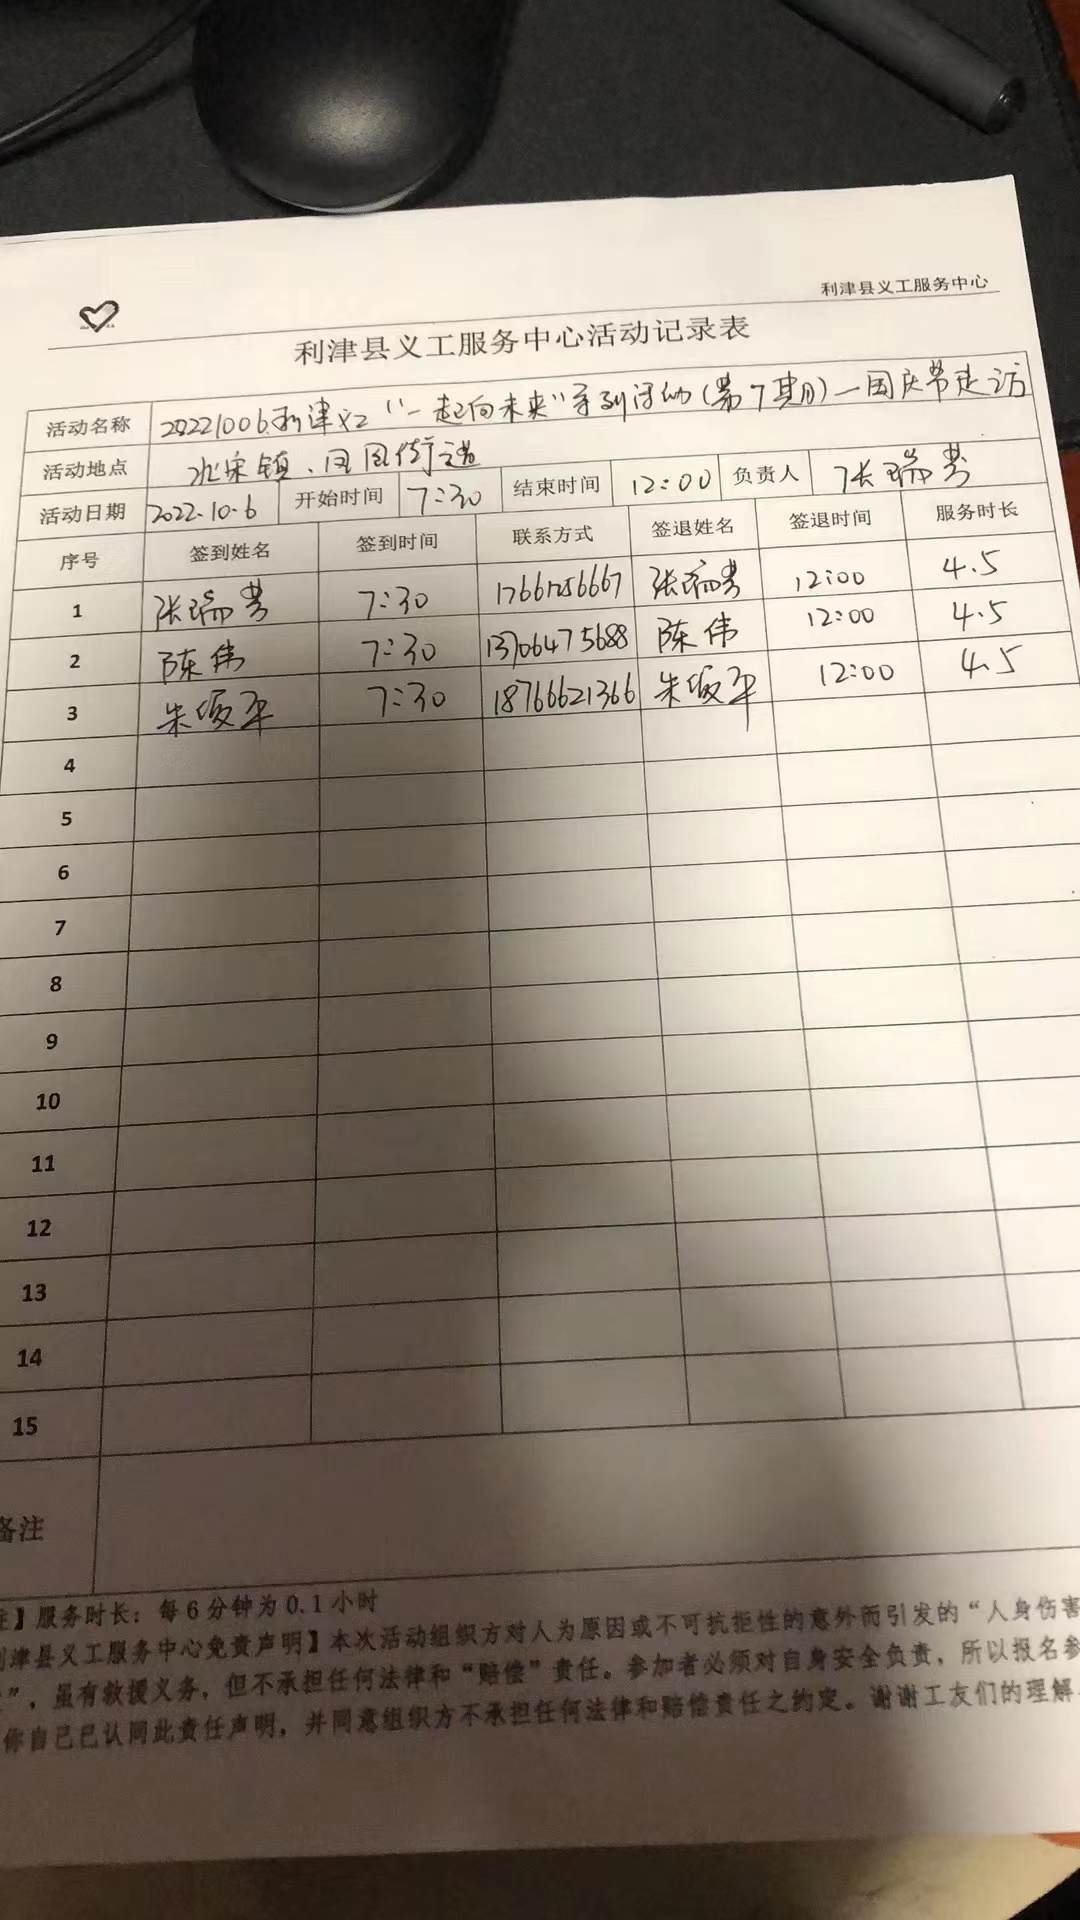 利津县义工服务中心
利津县义工服务中心活动记录表
活动名称 20221006利津义工“一起向未来”系列活动(第7期)—国庆节走访
活动地点 北宋镇、凤凰街道
活动日期 2022.10.6 开始时间 7:30 结束时间 12:00 负责人 张瑞芳
序号 签到姓名 签到时间 联系方式 签退姓名 签退时间 服务时长
1 张瑞芳 7:30 张瑞芳 12:00 4.5
2 陈伟 7:30 13706475688 陈伟 12:00 4.5
3 朱颂平 7:30 18766621366 朱颂平 12:00 4.5
4
5
6
7
8
9
10
11
12
13
14
15
备注
注】服务时长：每6分钟为0.1小时
利津县义工服务中心免责声明】本次活动组织方对人为原因或不可抗拒性的意外而引发的“人身伤害
”，虽有救援义务，但不承担任何法律和“赔偿”责任。参加者必须对自身安全负责，所以报名参
你自己已认同此责任声明，并同意组织方不承担任何法律和赔偿责任之约定。谢谢工友们的理解